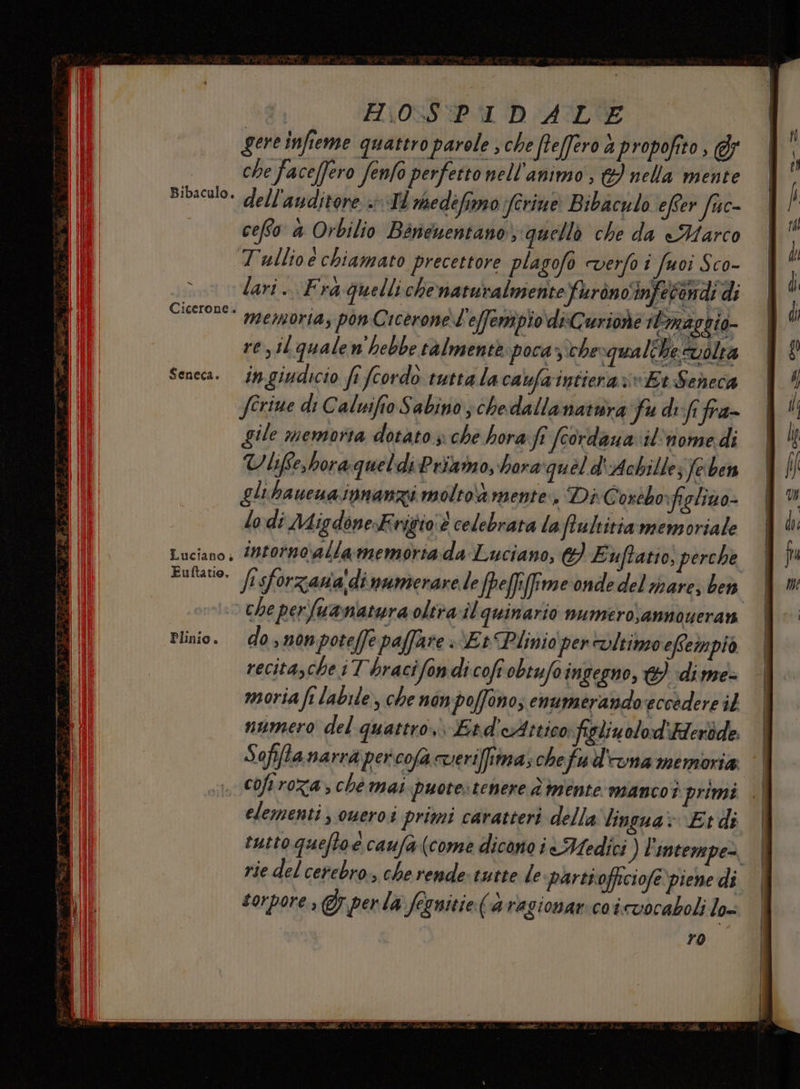 HOSPIDALE
gere insieme quattro parole, che steſſero à propoſito, &
che faceſſero ſenſo perfetto nell'animo, & nella mente
Bibaculo. dell'auditore. Il medeſimo ſcriue Bibaculo eſſer ſuc-
ceſſo à Orbilio Beneuentano, quello che da Marco
Tullio è chiamato precettore plagoſo verſo i ſuoi Sco-
lari. Frà quelli che naturalmente furono infecondi di
Cicerone. memoria, pon Cicerone l'eſſempio di Curione il maggio-
re, il quale n'hebbe talmente poca, che qualche volta
Seneca. in giudicio ſi ſcordò tutta la cauſa intiera: Et Seneca
ſcriue di Caluiſio Sabino, che dalla natura fu di ſi fra-
gile memoria dotato, che hora ſi ſcordaua il nome di
Vliſſe, hora quel di Priamo, hora quel d'Achille, ſe ben
gli haueua innanzi molto à mente. Di Corebo figliuo-
lo di Migdone Frigio è celebrata la ſtultitia memoriale
Luciano. intorno alla memoria da Luciano, & Euſtatio, perche
Euſtatio. ſi sforzaua di numerare le ſpeſſiſſime onde del mare, ben
che per ſua natura oltra il quinario numero, annoueran
Plinio. do, non poteſſe paſſare. Et Plinio per vltimo eſſempio
recita, che i Thraci ſon di coſi obtuſo ingegno, & di me-
moria ſi labile, che non poſſono, enumerando eccedere il
numero del quattro. Et d'Attico figliuolo d'Herode
Sofiſta narra per coſa veriſſima, che fu d'vna memoria
coſi roza, che mai puote tenere à mente manco i primi
elementi, ouero i primi caratteri della lingua: Et di
tutto queſto è cauſa (come dicono i Medici) l'intempe-
rie del cerebro, che rende tutte le parti officioſe piene di
torpore, & per la ſegnitie (à ragionar co i vocaboli lo-
ro